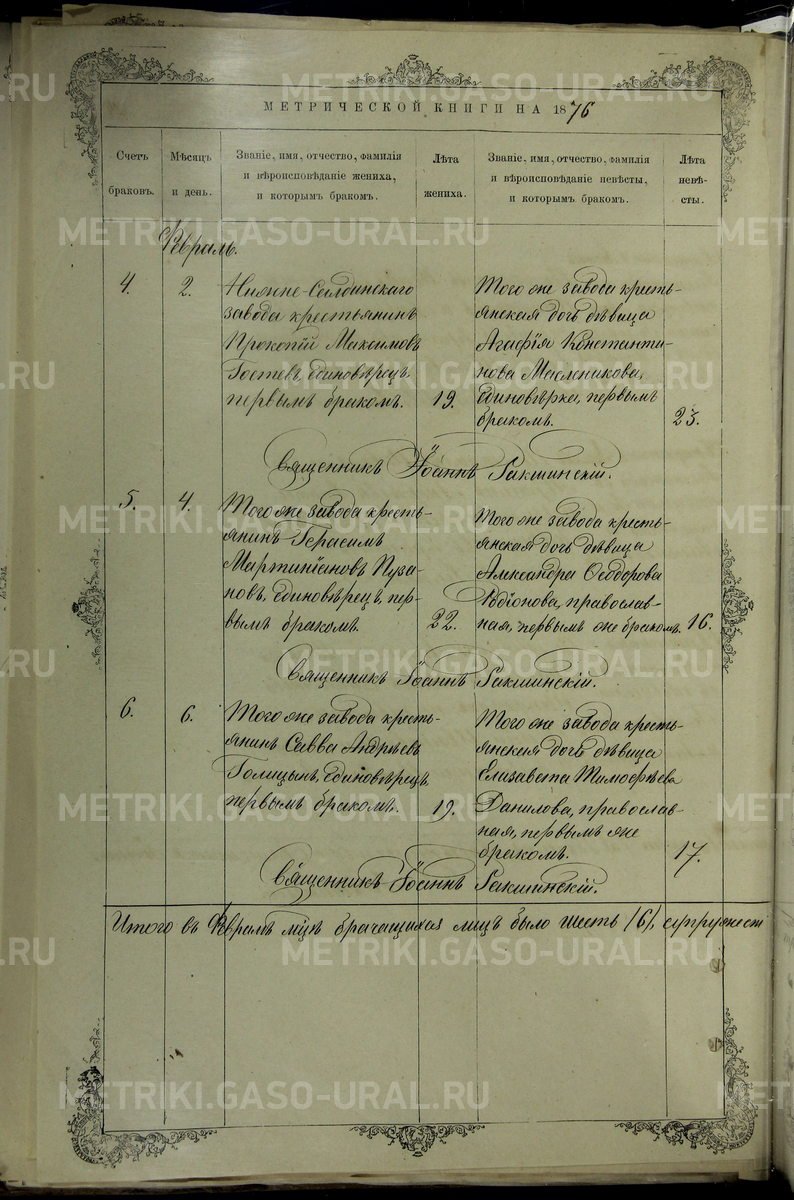 МЕТРИЧЕСКОЙ КНИГИ НА 1876
Счетъ браковъ.
Мѣсяцъ и день.
Званіе, имя, отчество, фамилія
и вѣроисповѣданіе жениха,
и которымъ бракомъ.
Лѣта жениха.
Званіе, имя, отчество, фамилія
и вѣроисповѣданіе невѣсты,
и которымъ бракомъ.
Лѣта невѣ-
сты.
Февраль.
4.
2.
Нижне-Салдинскаго
завода крестьянинъ
Прокопій Максимовъ
Гостевъ, единовѣрецъ,
первымъ бракомъ.
19.
Того же завода кресть-
янская дочь дѣвица
Агафія Константи-
нова Масленикова,
единовѣрка, первымъ
бракомъ.
23.
Священникъ Іоаннъ Ракшинскій.
5.
4.
Того же завода кресть-
янинъ Герасимъ
Мартиніановъ Пуза-
новъ, единовѣрецъ, пер-
вымъ бракомъ.
22.
Того же завода кресть-
янская дочь дѣвица
Александра Ѳеодорова
Родіонова, православ-
ная, первымъ же бракомъ.
16.
Священникъ Іоаннъ Ракшинскій.
6.
6.
Того же завода кресть-
янинъ Савва Андрѣевъ
Голицынъ, единовѣрецъ,
первымъ бракомъ.
19.
Того же завода кресть-
янская дочь дѣвица
Елизавета Тимоѳѣева
Данилова, православ-
ная, первымъ же
бракомъ.
17.
Священникъ Іоаннъ Ракшинскій.
Итого въ Февралѣ мцѣ брачащихся лицъ было шесть /6/, супружест
METRIKI.GASO-URAL.RU